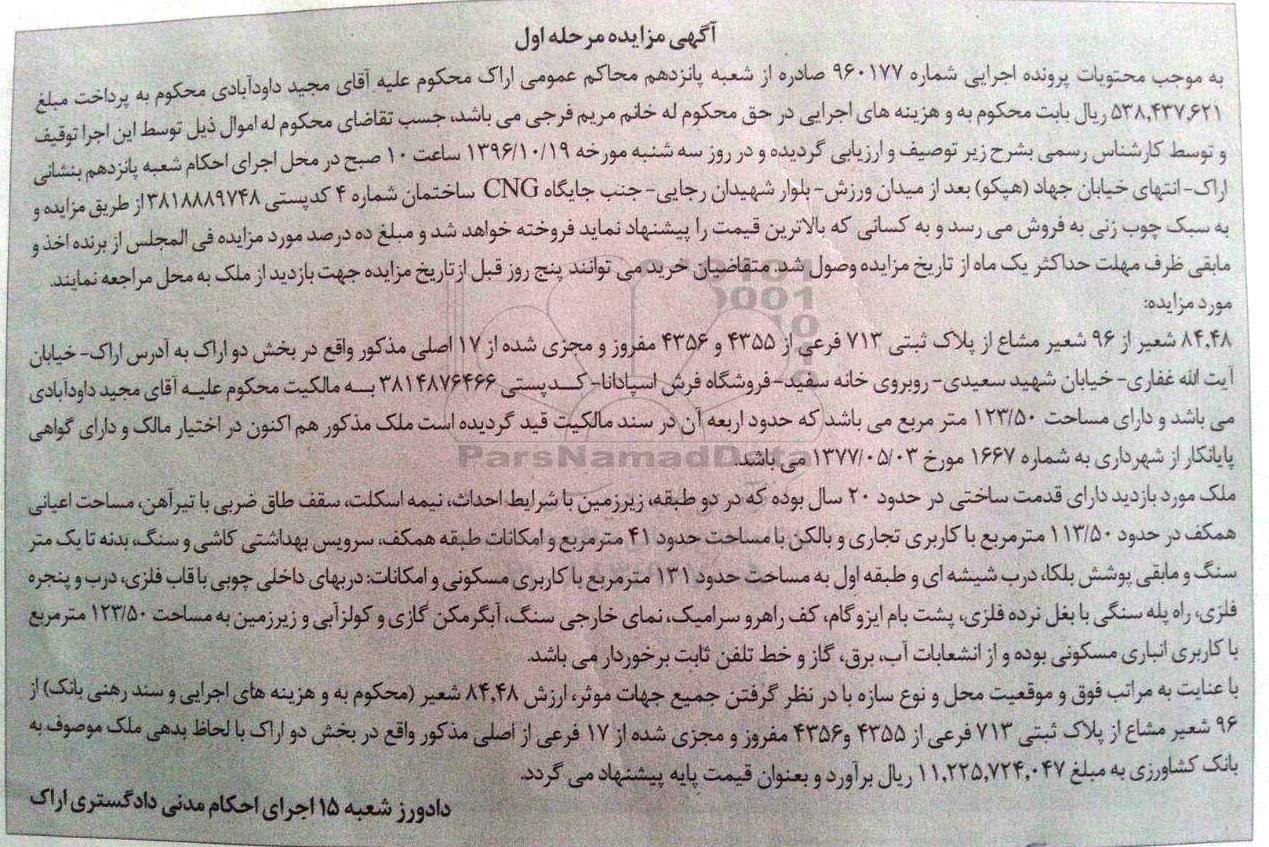 آگهی مزایده مرحله اول
به موجب محتویات پرونده اجرایی شماره ۹۶۰۱۷۷ صادره از شعبه پانزدهم محاکم عمومی اراک محکوم علیه آقای مجید داودآبادی محکوم به پرداخت مبلغ
۵۳۸,۴۳۷,۶۲۱ ریال بابت محکوم به و هزینه های اجرایی در حق محکوم له خانم مریم فرجی می باشد، جسب تقاضای محکوم له اموال ذیل توسط این اجرا توقیف
و توسط کارشناس رسمی بشرح زیر توصیف و ارزیابی گردیده و در روز سه شنبه مورخه ۱۳۹۶/۱۰/۱۹ ساعت ۱۰ صبح در محل اجرای احکام شعبه پانزدهم بنشانی
اراک- انتهای خیابان جهاد (هپکو) بعد از میدان ورزش- بلوار شهیدان رجایی- جنب جایگاه CNG ساختمان شماره ۴ کدپستی ۳۸۱۸۸۸۹۷۴۸ از طریق مزایده و
به سبک چوب زنی به فروش می رسد و به کسانی که بالاترین قیمت را پیشنهاد نماید فروخته خواهد شد و مبلغ ده درصد مورد مزایده فی المجلس از برنده اخذ و
مابقی ظرف مهلت حداکثر یک ماه از تاریخ مزایده وصول شد. متقاضیان خرید می توانند پنج روز قبل از تاریخ مزایده جهت بازدید از ملک به محل مراجعه نمایند.
مورد مزایده:
۸۴,۴۸ شعیر از ۹۶ شعیر مشاع از پلاک ثبتی ۷۱۳ فرعی از ۴۳۵۵ و ۴۳۵۶ مفروز و مجزی شده از ۱۷ اصلی مذکور واقع در بخش دو اراک به آدرس اراک- خیابان
آیت الله غفاری- خیابان شهید سعیدی- روبروی خانه سفید- فروشگاه فرش اسپادانا- کدپستی ۳۸۱۴۸۷۶۴۶۶ به مالکیت محکوم علیه آقای مجید داودآبادی
می باشد و دارای مساحت ۱۲۳/۵۰ متر مربع می باشد که حدود اربعه آن در سند مالکیت قید گردیده است ملک مذکور هم اکنون در اختیار مالک و دارای گواهی
پایانکار از شهرداری به شماره ۱۶۶۷ مورخ ۱۳۷۷/۰۵/۰۳ می باشد.
ملک مورد بازدید دارای قدمت ساختی در حدود ۲۰ سال بوده که در دو طبقه، زیرزمین با شرایط احداث، نیمه اسکلت، سقف طاق ضربی با تیرآهن، مساحت اعیانی
همکف در حدود ۱۱۳/۵۰ مترمربع با کاربری تجاری و بالکن با مساحت حدود ۴۱ مترمربع و امکانات طبقه همکف، سرویس بهداشتی کاشی و سنگ، بدنه تا یک متر
سنگ و مابقی پوشش بلکا، درب شیشه ای و طبقه اول به مساحت حدود ۱۳۱ مترمربع با کاربری مسکونی و امکانات: دربهای داخلی چوبی با قاب فلزی، درب و پنجره
فلزی، راه پله سنگی با بغل نرده فلزی، پشت بام ایزوگام، کف راهرو سرامیک، نمای خارجی سنگ، آبگرمکن گازی و کولرآبی و زیرزمین به مساحت ۱۲۳/۵۰ مترمربع
با کاربری انباری مسکونی بوده و از انشعابات آب، برق، گاز و خط تلفن ثابت برخوردار می باشد.
با عنایت به مراتب فوق و موقعیت محل و نوع سازه با در نظر گرفتن جمیع جهات موثر، ارزش ۸۴,۴۸ شعیر (محکوم به و هزینه های اجرایی و سند رهنی بانک) از
۹۶ شعیر مشاع از پلاک ثبتی ۷۱۳ فرعی از ۴۳۵۵ و ۴۳۵۶ مفروز و مجزی شده از ۱۷ فرعی از اصلی مذکور واقع در بخش دو اراک با لحاظ بدهی ملک موصوف به
بانک کشاورزی به مبلغ ۱۱,۲۲۵,۷۲۴,۰۴۷ ریال برآورد و بعنوان قیمت پایه پیشنهاد می گردد.
دادورز شعبه ۱۵ اجرای احکام مدنی دادگستری اراک
ParsNamadData